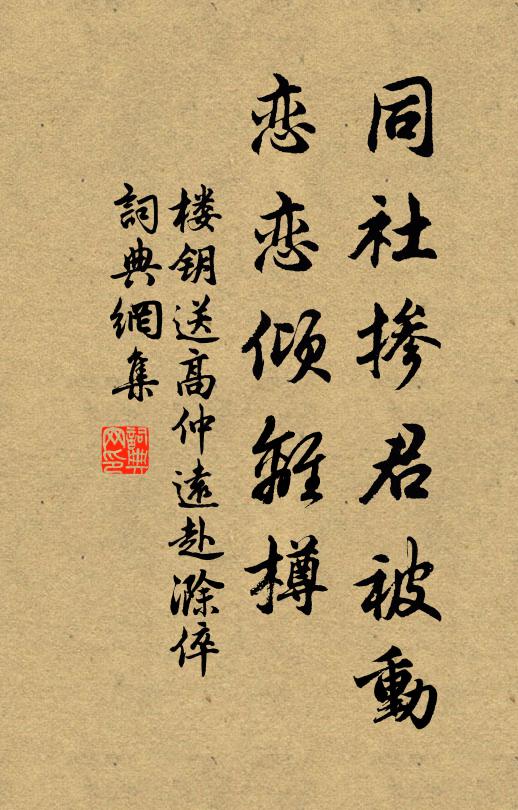 同社掺君被動
恋恋傾離樽
楼钥送高仲遠赴滁倅
詞典網集
詞典网印